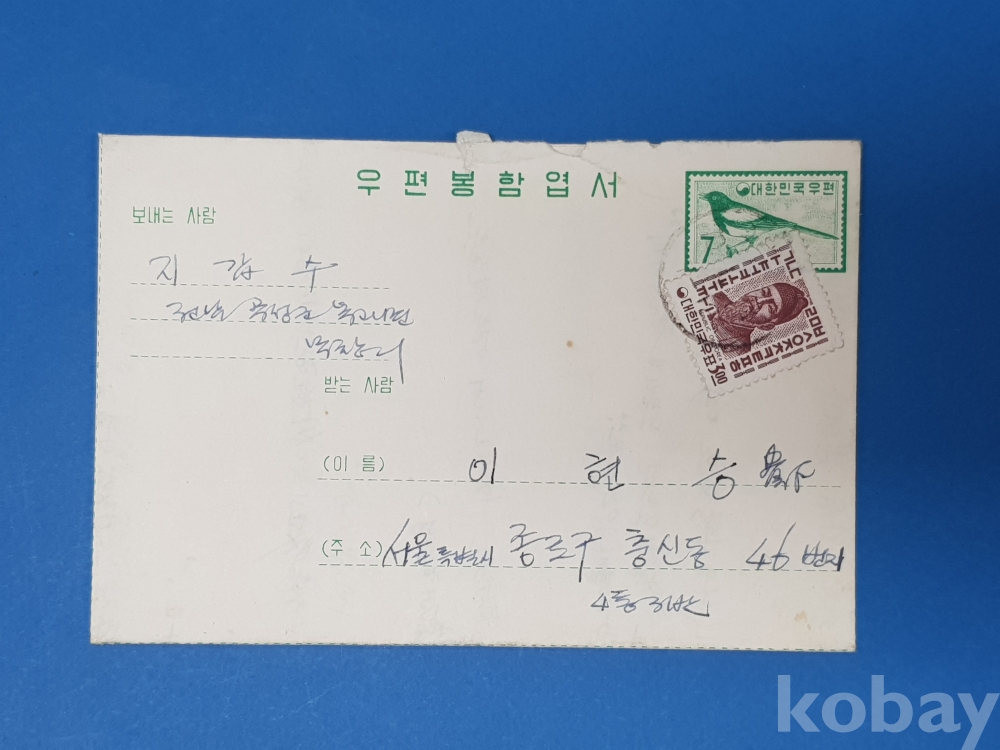 우편봉함엽서
대한민국우편
7
보내는 사람
지 갑 수
전남 곡성군
대한민국우표
3.00
받는 사람
(이 름) 이 현 승
(주 소) 서울특별시 종로구 충신동 46 번지
4통 3반
kobay